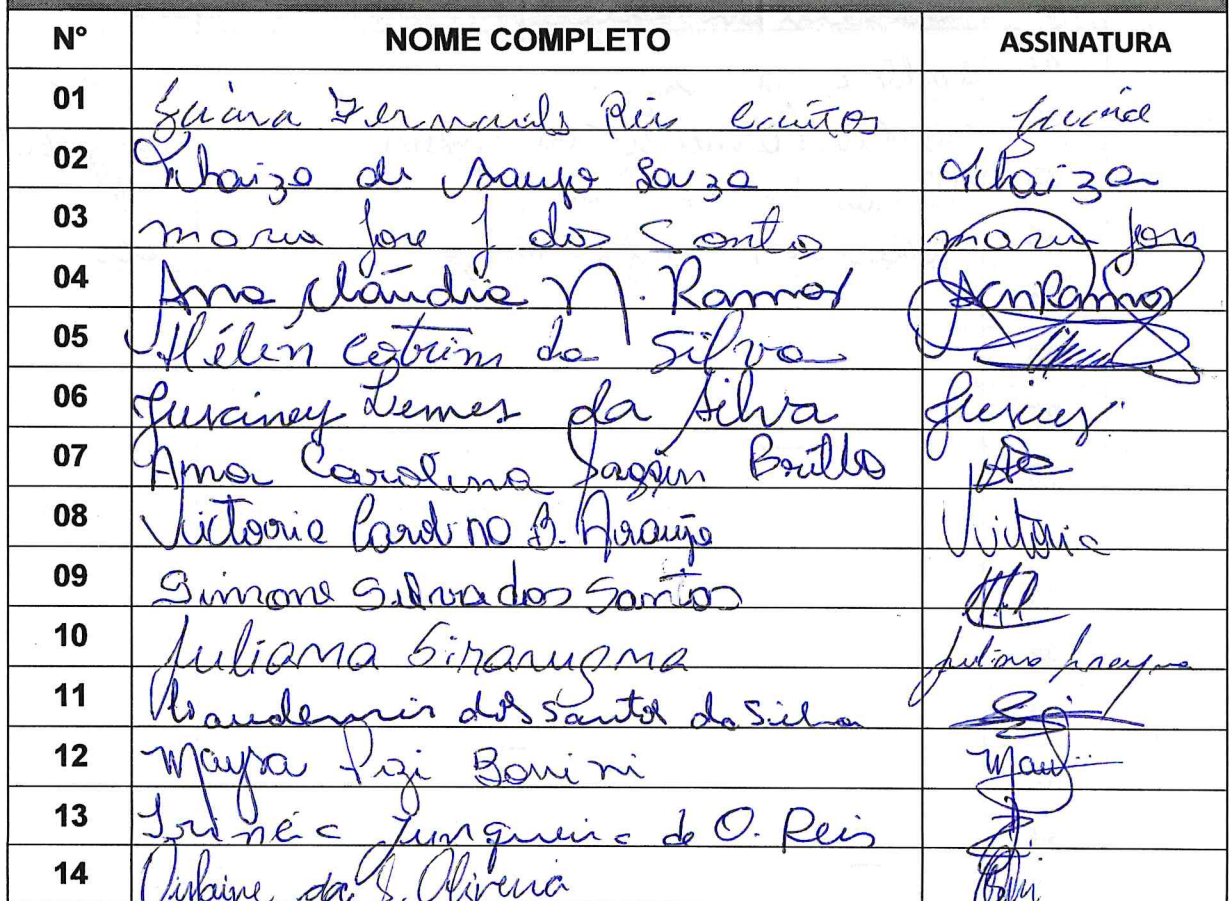 N° NOME COMPLETO ASSINATURA
01 Reis
02 Thaiza de Araujo Souza Thaiza
03 maria Jose J dos Santos maria Jose
04 Ana Cláudia N. Ramos ACNRamos
05 Hélén Cotrim da Silva
06 Juraney Lemes da Silva
07 Ana Carolina Brillo
08 Victoria B. Araujo Vitória
09 Simone Silva dos Santos
10 Juliana Juliana
11 dos Santos da Silva
12 Maysa Pizi Bonini May
13 Irinéia Junqueira de O. Reis
14 da S. Oliveira